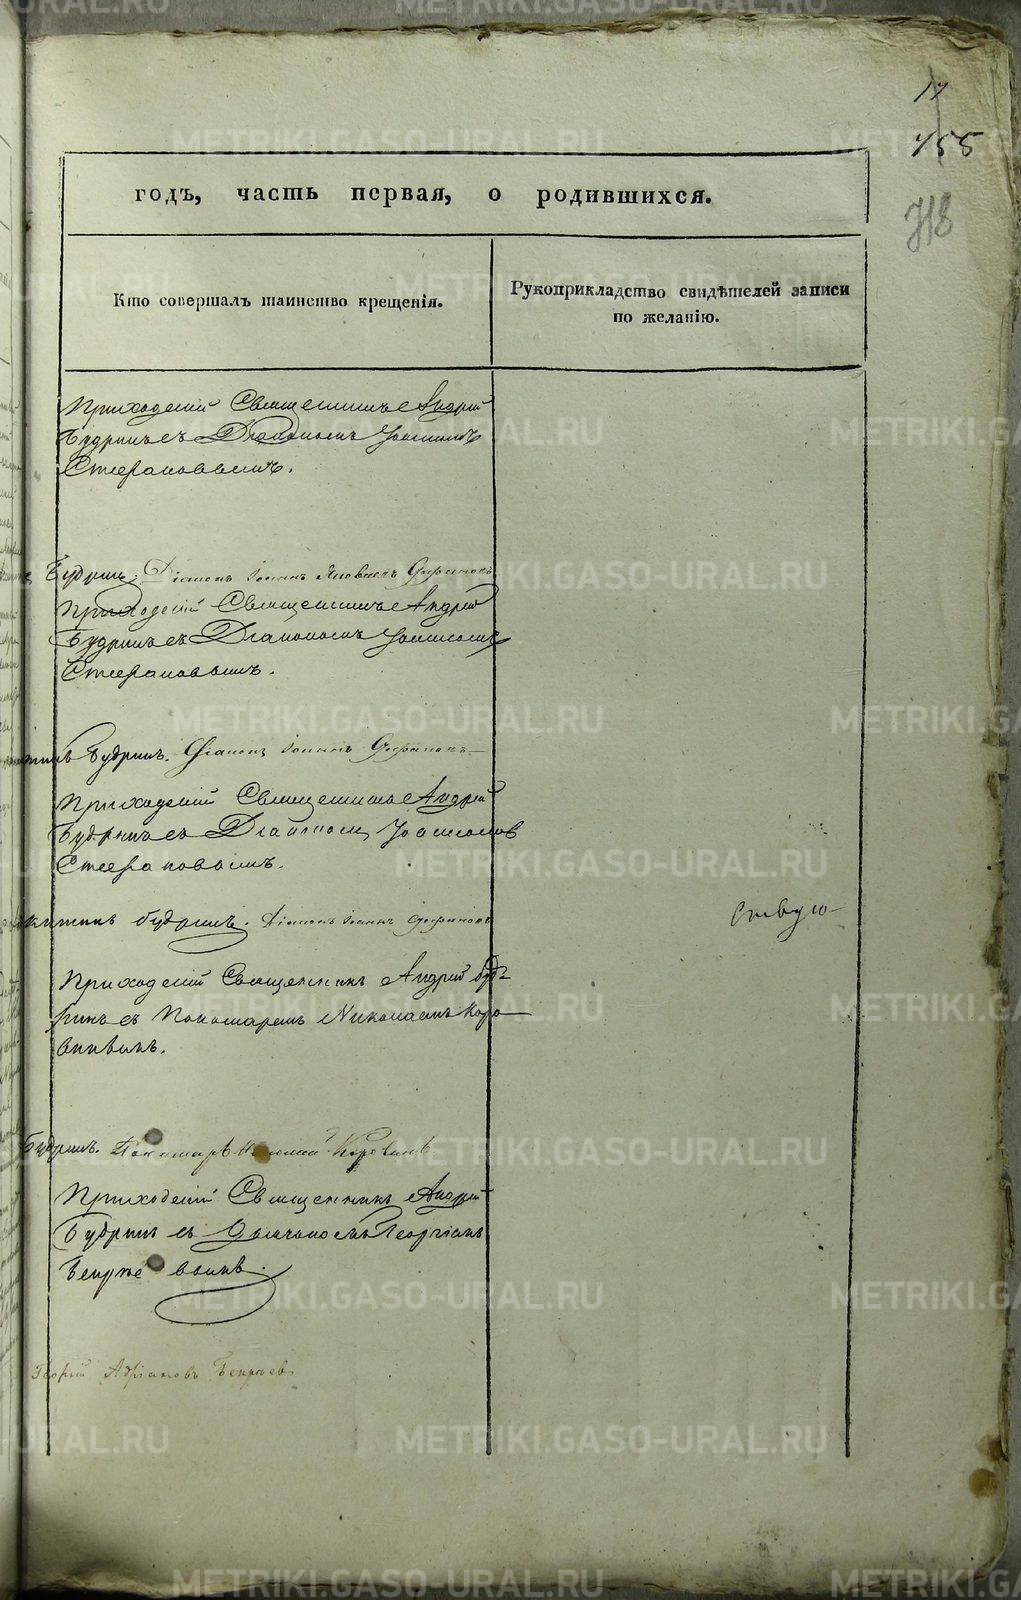 17
455
718
годъ, часть первая, о родившихся.
Кто совершалъ таинство крещенія.
Рукоприкладство свидѣтелей записи по желанію.
Приходскій Священникъ Андрей
Будринъ съ Діакономъ Іоанномъ
Стефановымъ.
Будринъ. Діаконъ Іоаннъ Стефановъ
Приходскій Священникъ Андрей
Будринъ съ Діакономъ Іоанномъ
Стефановымъ.
Будринъ. Діаконъ Іоаннъ Стефановъ
Приходскій Священникъ Андрей
Будринъ съ Діакономъ Іоанномъ
Стефановымъ.
Будринъ. Діаконъ Іоаннъ Стефановъ
Приходскій Священникъ Андрей Буд-
ринъ съ Пономаремъ Николаемъ Коро-
Будринъ. Пономарь Николай
Приходскій Священникъ Андрей
Будринъ съ Георгіемъ
Георгій Адріановъ
METRIKI.GASO-URAL.RU